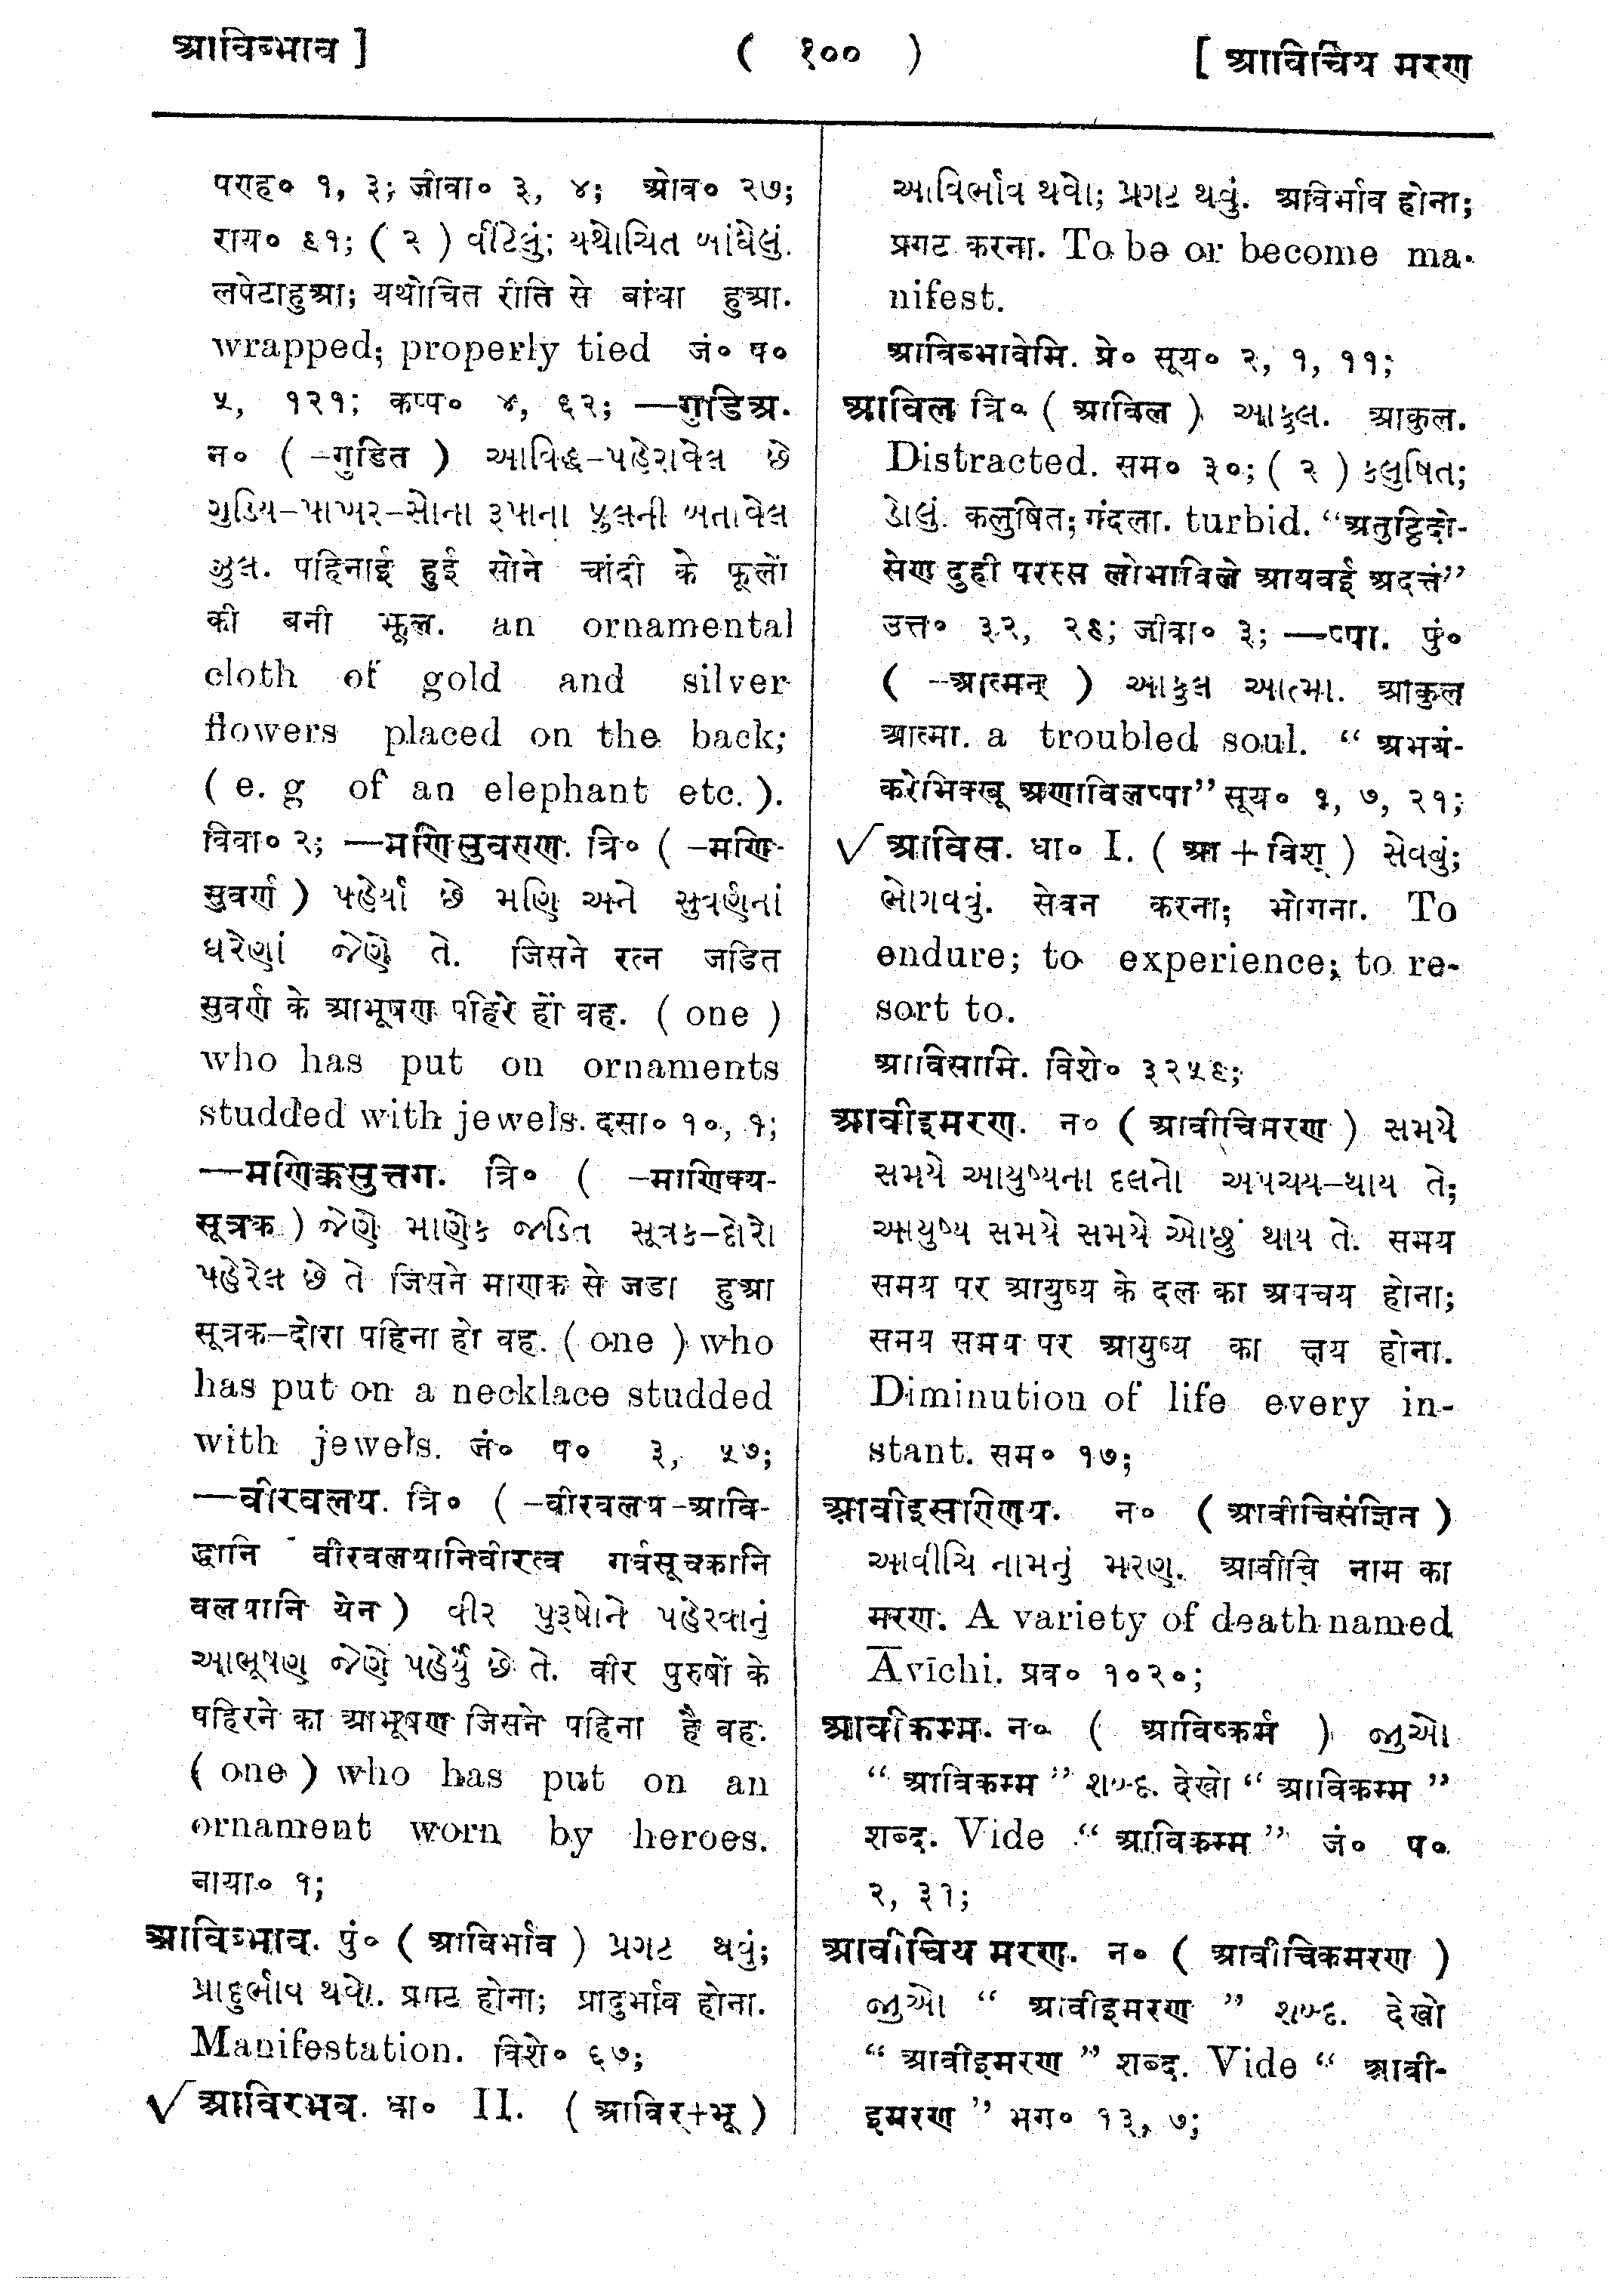 आविब्भाव ]
( १०० )
[ आविचिय मरण
पराह० १, ३; जीवा० ३, ४; ओव० २७;
राय० ६१; ( २ ) વીંટેલું; યથોચિત બાંધેલું.
लपेटाहुआ; यथोचित रीति से बांधा हुआ.
wrapped; properly tied जं० प०
५, १२१; कप्प० ४, ६२; —गुडिअ.
न० ( -गुडित ) આવિદ્ધ-પહેરાવેલ છે
ગુડિય-પાખર-સોના રૂપાના ફુલની બનાવેલ
ઝુલ. पहिनाई हुई सोने चांदी के फूलों
की बनी झूल. an ornamental
cloth of gold and silver
flowers placed on the back;
( e. g of an elephant etc. ).
विवा० २; —मणिसुवराण. त्रि० ( -मणि-
सुवर्ण ) પહેર્યાં છે મણિ અને સુવર્ણનાં
ઘરેણાં જેણે તે. जिसने रत्न जडित
सुवर्ण के आभूषण पहिरे हों वह. ( one )
who has put on ornaments
studded with jewels. दसा० १०, १;
—मणिक्कसुत्तग. त्रि० ( -माणिक्य-
सूत्रक ) જેણે માણેક જડિત સૂત્રક-દોરો
પહેરેલ છે તે जिसने माणक से जडा हुआ
सूत्रक-दोरा पहिना हो वह. ( one ) who
has put on a necklace studded
with jewels. जं० प० ३, ५७;
—वीरवलय. त्रि० ( -वीरवलय-आवि-
द्धानि वीरवलयानिवीरत्व गर्वसूचकानि
वलयानि येन ) વીર પુરૂષોને પહેરવાનું
આભૂષણ જેણે પહેર્યું છે તે. वीर पुरुषों के
पहिरने का आभूषण जिसने पहिना है वह.
( one ) who has put on an
ornament worn by heroes.
नाया० १;
आविब्भाव. पुं० ( आविर्भाव ) પ્રગટ થવું;
પ્રાદુર્ભાવ થવો. प्रगट होना; प्रादुर्भाव होना.
Manifestation. विशे० ६७;
√ आविरभव. धा० II. ( आविर्+भू )
આવિર્ભાવ થવો; પ્રગટ થવું. आविर्भाव होना;
प्रगट करना. To be or become ma-
nifest.
आविब्भावेमि. प्रे० सूय० २, १, ११;
आविल त्रि० ( आविल ) આકુલ. आकुल.
Distracted. सम० ३०; ( २ ) કલુષિત;
ડોલું. कलुषित; गंदला. turbid. “अतुट्ठिदो-
सेण दुही परस्स लोभाविले आययई अदत्तं”
उत्त० ३२, २६; जीवा० ३; —प्पा. पुं०
( -आत्मन् ) આકુલ આત્મા. आकुल
आत्मा. a troubled soul. “ अभयं-
करेभिक्खू अणाविलप्पा” सूय० १, ७, २१;
√ आविस. धा० I. ( आ + विश् ) સેવવું;
ભોગવવું. सेवन करना; भोगना. To
endure; to experience; to re-
sort to.
आविसामि. विशे० ३२५६;
आवीइमरण. न० ( आवीचिमरण ) સમયે
સમયે આયુષ્યના દલનો અપચય-થાય તે;
આયુષ્ય સમયે સમયે ઓછું થાય તે. समय
समय पर आयुष्य के दल का अपचय होना;
समय समय पर आयुष्य का क्षय होना.
Diminution of life every in-
stant. सम० १७;
आवीइसरिणय. न० ( आवीचिसंज्ञित )
આવીચિ નામનું મરણ. आवीचि नाम का
मरण. A variety of death named
Āvīchi. प्रव० १०२०;
आवीकम्म. न० ( आविष्कर्म ) જુઓ
“ आविकम्म ” શબ્દ. देखो “ आविकम्म ”
शब्द. Vide “ आविकम्म ” जं० प०
२, ३१;
आवीचिय मरण. न० ( आवीचिकमरण )
જુઓ “ आवीइमरण ” શબ્દ. देखो
“ आवीइमरण ” शब्द. Vide “ आवी-
इमरण ” भग० १३, ७;